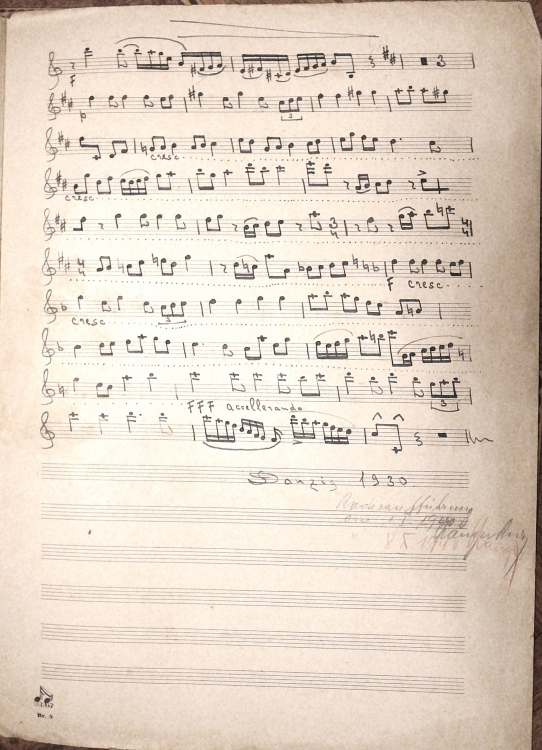 F
3
p
3
cresc
cresc
3
4
4
4
4
4
F cresc.
cresc
3
3
FFF accellerando
Danzig 1930
Nr. 5